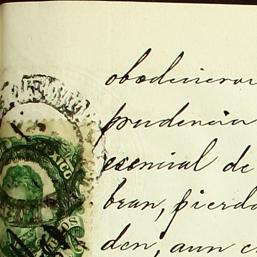 obedecieron
prudencia
esencial de
bran, pierda
den, aun c